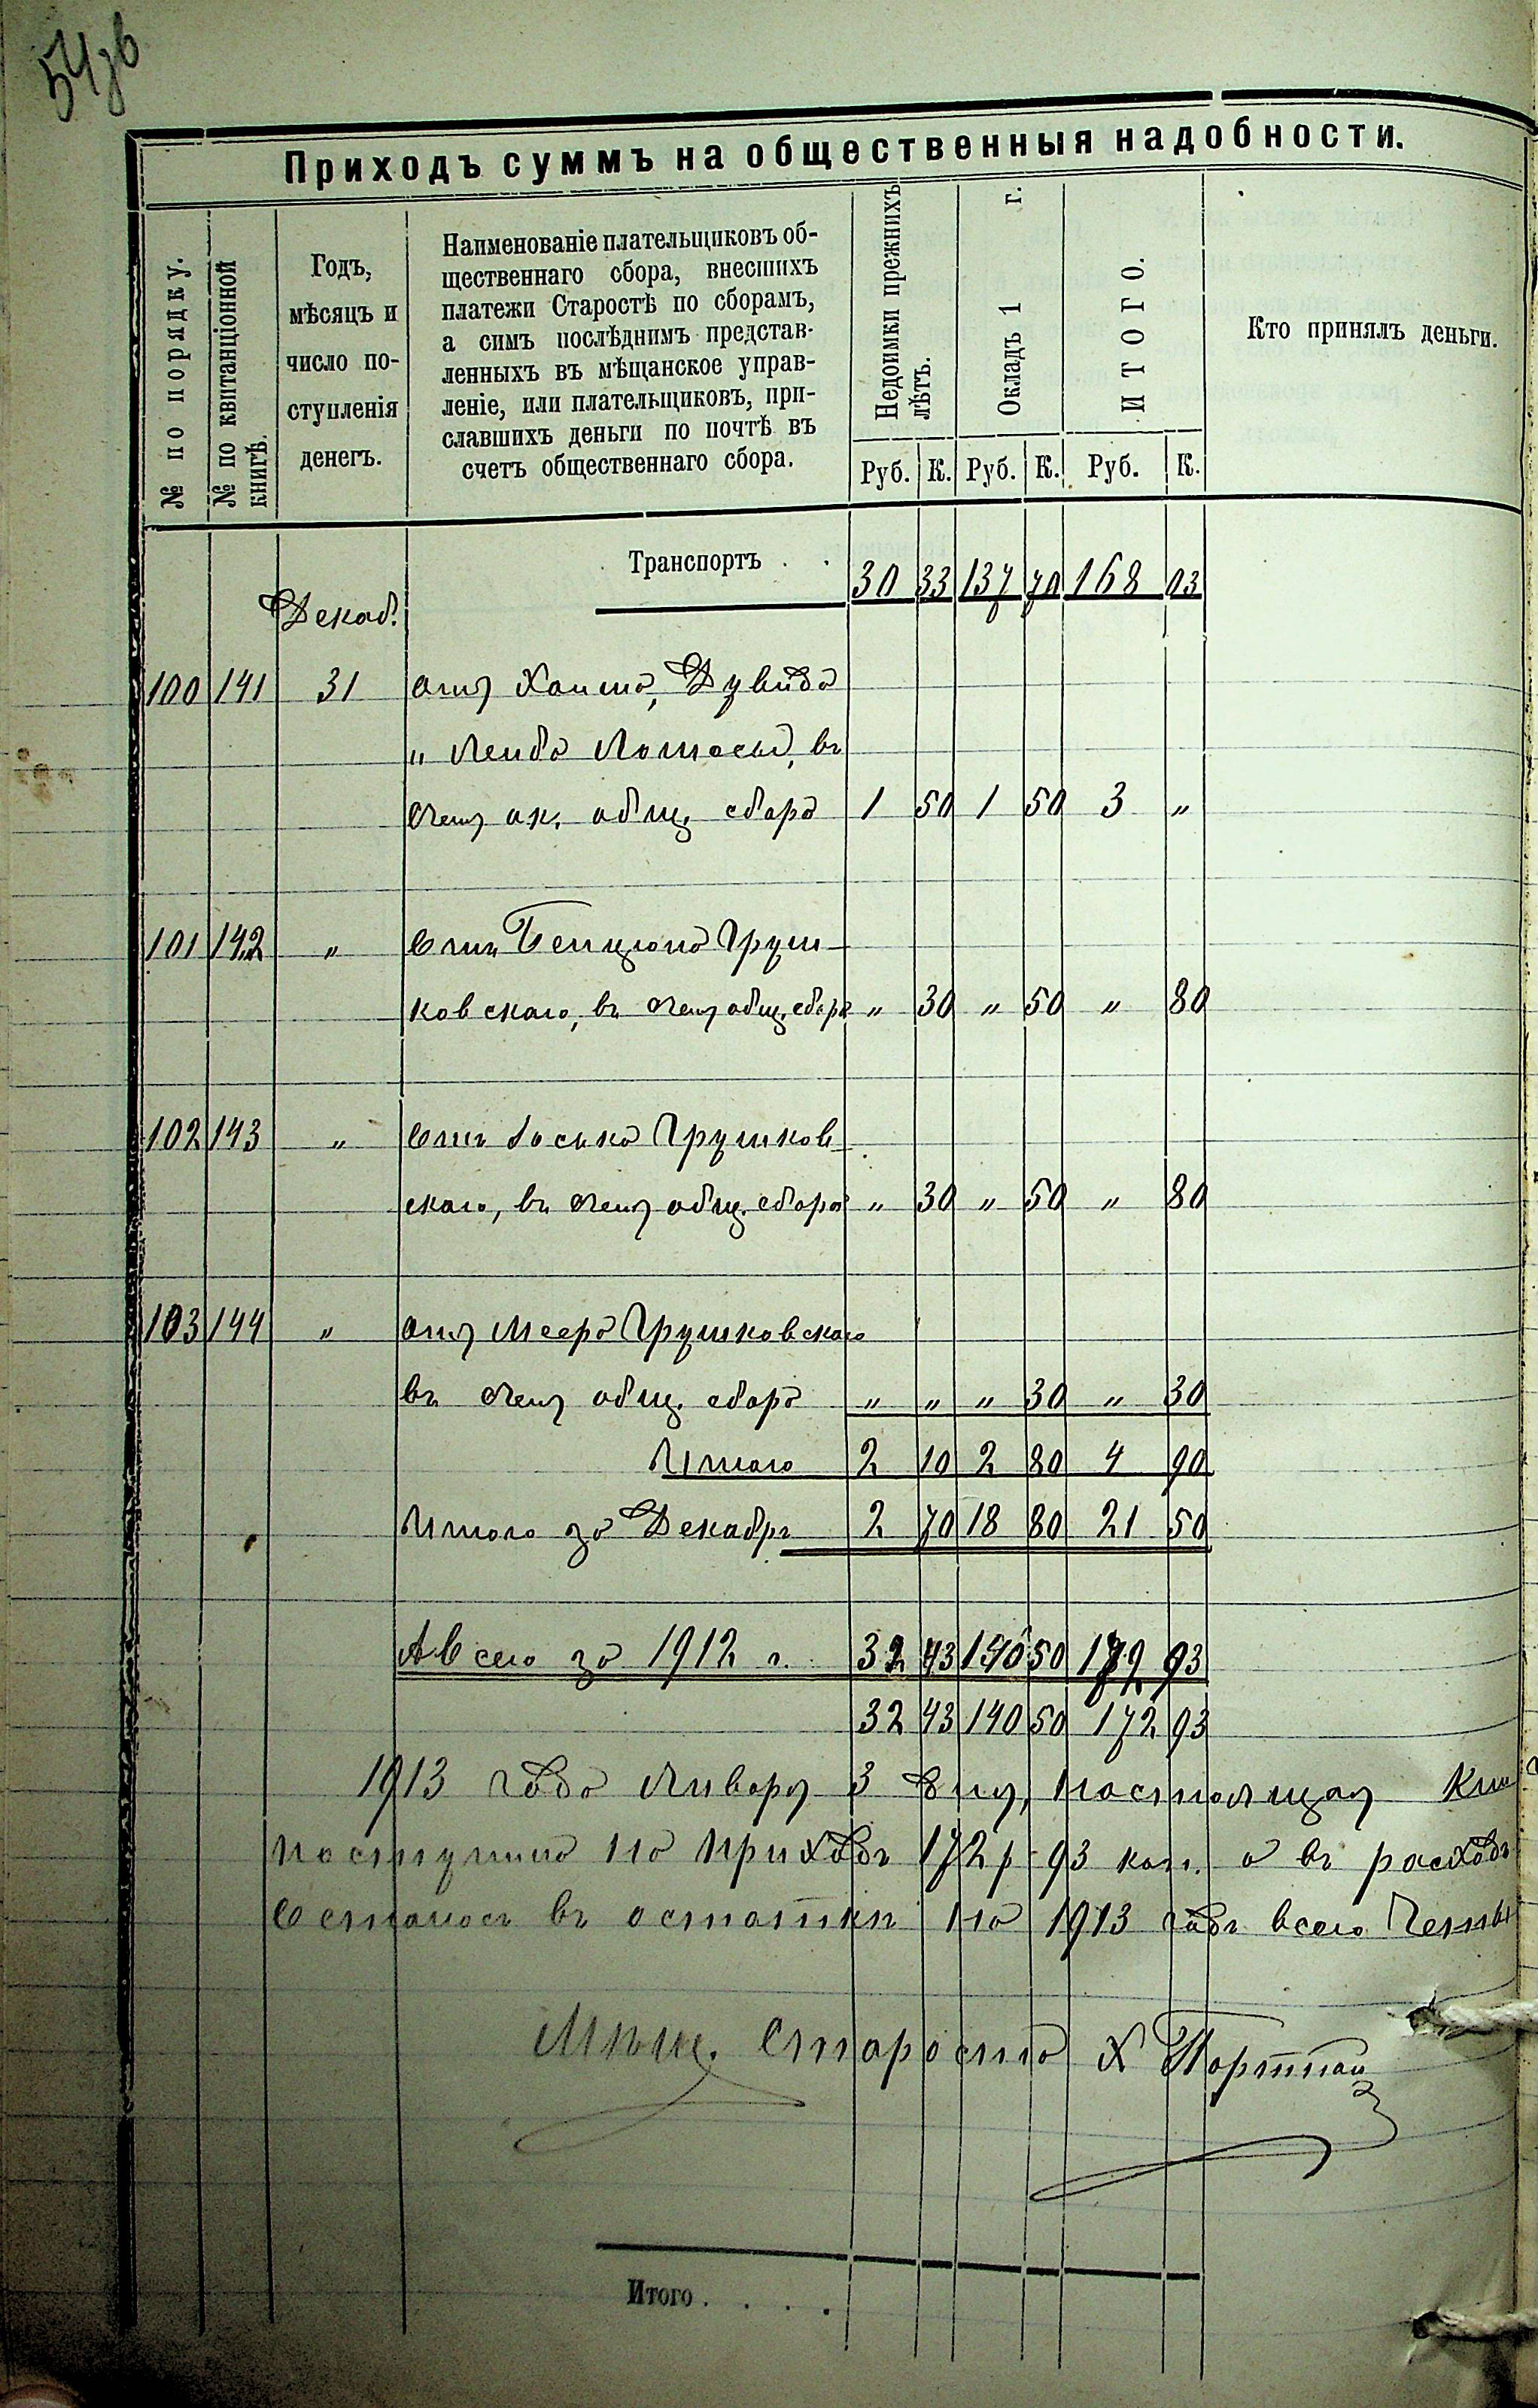 54об
Приходъ суммъ на общественныя надобности.
№ по порядку.
№ по квитанціонной
книгѣ.
Годъ,
мѣсяцъ и
число по-
ступленія
денегъ.
Наименованіе плательщиковъ об-
щественнаго сбора, внесшихъ
платежи Старостѣ по сборамъ,
а симъ послѣднимъ представ-
ленныхъ въ мѣщанское управ-
леніе, или плательщиковъ, при-
славшихъ деньги по почтѣ въ
счетъ общественнаго сбора.
Недоимки прежнихъ
лѣтъ.
Окладъ 1 г.
ИТОГО.
Кто принялъ деньги.
Руб. К. Руб. К. Руб. К.
Транспортъ . . 30 33 137 70 168 03
Декаб.
100 141 31 отъ Хаима, Дувида
и Лейба, въ
счетъ ок. общ. сбора 1 50 1 50 3 "
101 142 " Отъ Бенциона Груш-
ковскаго, въ счетъ общ. сбора " 30 " 50 " 80
102 143 " Отъ Іоська Грушков
скаго, въ счетъ общ. сбора " 30 " 50 " 80
103 144 " отъ Меера Грушковскаго
въ счетъ общ. сбора " " " 30 " 30
Итого 2 10 2 80 4 90
Итого за Декабрь 2 70 18 80 21 50
А всего за 1912 г. 32 43 140 50 172 93
32 43 140 50 172 93
1913 года Января 3 дня, настоящая
поступило на приходъ 172 р 93 коп. а въ расходъ
Осталось въ остаткѣ на 1913 годъ всего
Мѣщ. Староста Х
Итого . . . .